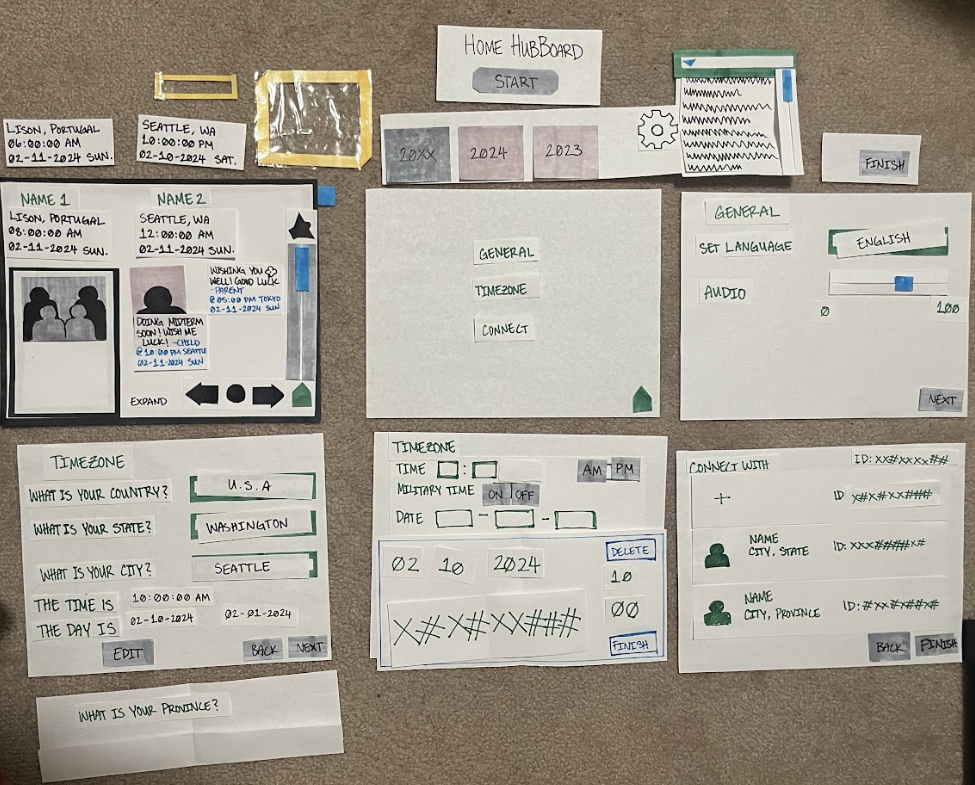 HOME HUBBOARD
START
LISON, PORTUGAL
06:00:00 AM
02-11-2024 SUN.
SEATTLE, WA
10:00:00 PM
02-10-2024 SAT.
20XX
2024
2023
FINISH
NAME 1
LISON, PORTUGAL
08:00:00 AM
02-11-2024 SUN.
NAME 2
SEATTLE, WA
12:00:00 AM
02-11-2024 SUN.
WISHING YOU
WELL! GOOD LUCK
-PARENT
@ 05:00 PM TOKYO
02-11-2024 SUN
DOING MIDTERM
SOON! WISH ME
LUCK! -CHILD
@ 10:00 PM SEATTLE
02-11-2024 SUN
EXPAND
GENERAL
TIMEZONE
CONNECT
GENERAL
SET LANGUAGE
ENGLISH
AUDIO
0
100
NEXT
TIMEZONE
WHAT IS YOUR COUNTRY?
U.S.A
WHAT IS YOUR STATE?
WASHINGTON
WHAT IS YOUR CITY?
SEATTLE
THE TIME IS
10:00:00 AM
THE DAY IS
02-10-2024
02-01-2024
EDIT
BACK
NEXT
TIMEZONE
TIME
:
AM
PM
MILITARY TIME
ON
OFF
DATE
-
-
02
10
2024
DELETE
10
00
X#X#XX###
FINISH
CONNECT WITH
ID: XX#XXXX##
+
ID X#X#XX###
NAME
CITY, STATE
ID: XXX####X#
NAME
CITY, PROVINCE
ID: #XX#X#X#
BACK
FINISH
WHAT IS YOUR PROVINCE?